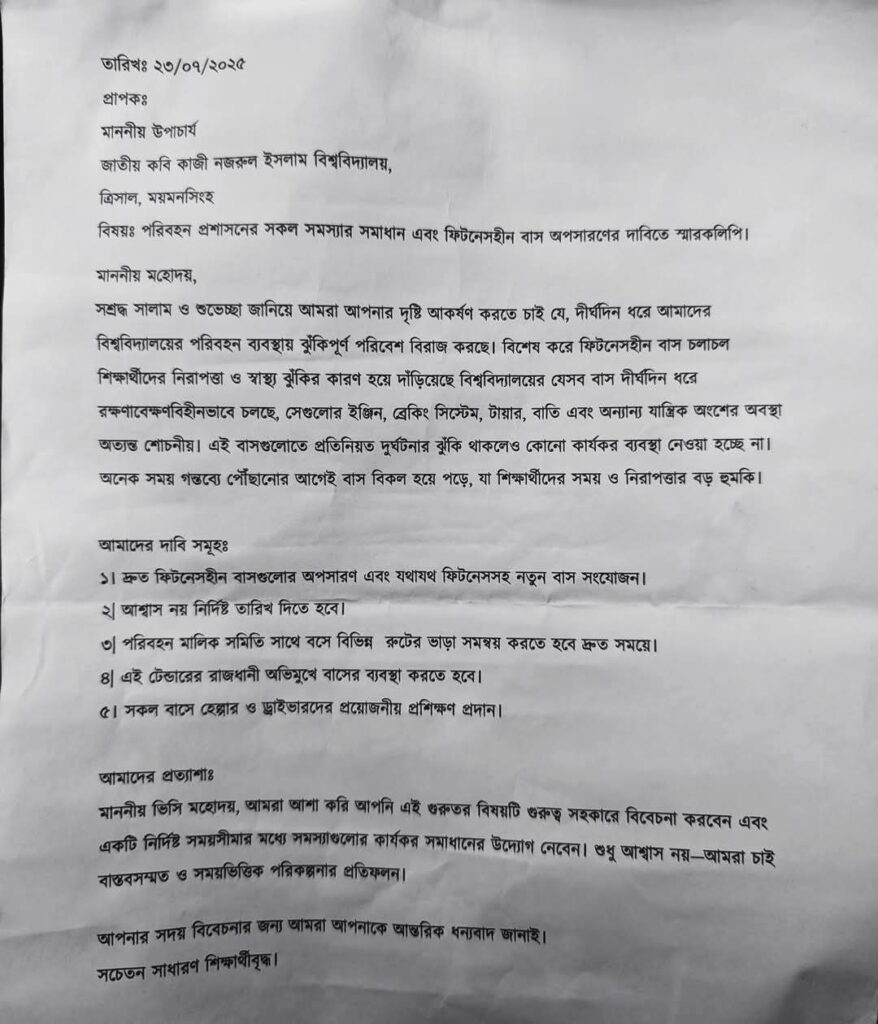 তারিখঃ ২৩/০৭/২০২৫
প্রাপকঃ
মাননীয় উপাচার্য
জাতীয় কবি কাজী নজরুল ইসলাম বিশ্ববিদ্যালয়,
ত্রিসাল, ময়মনসিংহ
বিষয়ঃ পরিবহন প্রশাসনের সকল সমস্যার সমাধান এবং ফিটনেসহীন বাস অপসারণের দাবিতে স্মারকলিপি।
মাননীয় মহোদয়,
সশ্রদ্ধ সালাম ও শুভেচ্ছা জানিয়ে আমরা আপনার দৃষ্টি আকর্ষণ করতে চাই যে, দীর্ঘদিন ধরে আমাদের
বিশ্ববিদ্যালয়ের পরিবহন ব্যবস্থায় ঝুঁকিপূর্ণ পরিবেশ বিরাজ করছে। বিশেষ করে ফিটনেসহীন বাস চলাচল
শিক্ষার্থীদের নিরাপত্তা ও স্বাস্থ্য ঝুঁকির কারণ হয়ে দাঁড়িয়েছে বিশ্ববিদ্যালয়ের যেসব বাস দীর্ঘদিন ধরে
রক্ষণাবেক্ষণবিহীনভাবে চলছে, সেগুলোর ইঞ্জিন, ব্রেকিং সিস্টেম, টায়ার, বাতি এবং অন্যান্য যান্ত্রিক অংশের অবস্থা
অত্যন্ত শোচনীয়। এই বাসগুলোতে প্রতিনিয়ত দুর্ঘটনার ঝুঁকি থাকলেও কোনো কার্যকর ব্যবস্থা নেওয়া হচ্ছে না।
অনেক সময় গন্তব্যে পৌঁছানোর আগেই বাস বিকল হয়ে পড়ে, যা শিক্ষার্থীদের সময় ও নিরাপত্তার বড় হুমকি।
আমাদের দাবি সমূহঃ
১। দ্রুত ফিটনেসহীন বাসগুলোর অপসারণ এবং যথাযথ ফিটনেসসহ নতুন বাস সংযোজন।
২| আশ্বাস নয় নির্দিষ্ট তারিখ দিতে হবে।
৩| পরিবহন মালিক সমিতি সাথে বসে বিভিন্ন রুটের ভাড়া সমন্বয় করতে হবে দ্রুত সময়ে।
৪| এই টেন্ডারের রাজধানী অভিমুখে বাসের ব্যবস্থা করতে হবে।
৫। সকল বাসে হেল্পার ও ড্রাইভারদের প্রয়োজনীয় প্রশিক্ষণ প্রদান।
আমাদের প্রত্যাশাঃ
মাননীয় ভিসি মহোদয়, আমরা আশা করি আপনি এই গুরুতর বিষয়টি গুরুত্ব সহকারে বিবেচনা করবেন এবং
একটি নির্দিষ্ট সময়সীমার মধ্যে সমস্যাগুলোর কার্যকর সমাধানের উদ্যোগ নেবেন। শুধু আশ্বাস নয়—আমরা চাই
বাস্তবসম্মত ও সময়ভিত্তিক পরিকল্পনার প্রতিফলন।
আপনার সদয় বিবেচনার জন্য আমরা আপনাকে আন্তরিক ধন্যবাদ জানাই।
সচেতন সাধারণ শিক্ষার্থীবৃন্ধ।